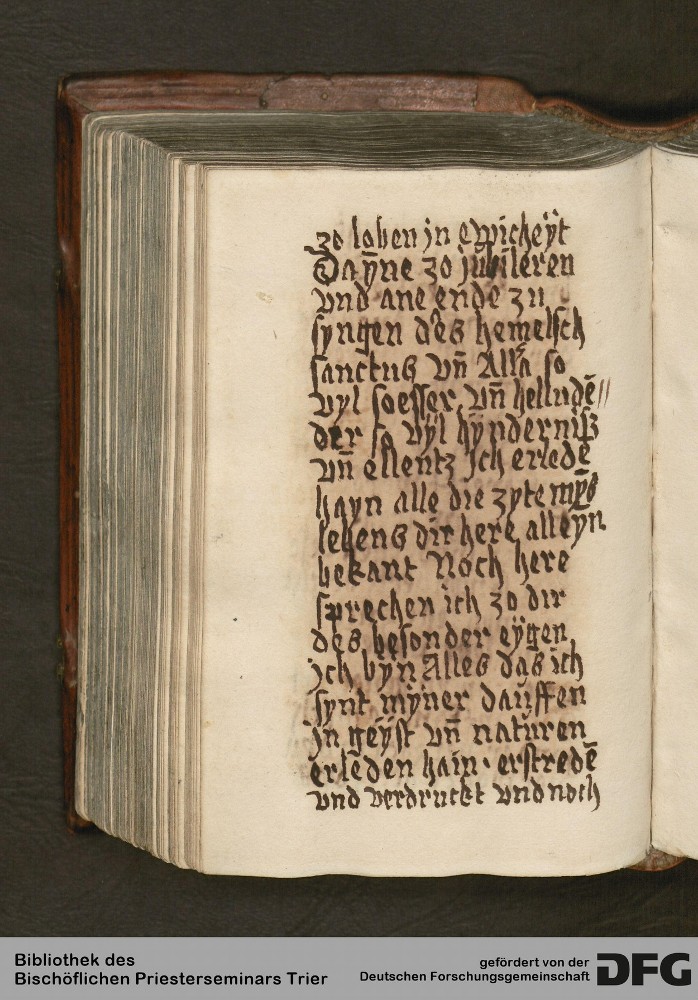 zo loben jn ewicheÿt
Da ÿne zo jubileren
vnd ane ende zu
syngen des hemelsch
sanctus vn̄ Alla so
vyl soesser vn̄ helludē//
der so vÿl hÿnderniß
vn̄ ellentz Jch erledē
hayn alle die zyte mÿs
lebens dir here alleyn
bekant Noch here
sprechen ich zo dir
des besonder eÿgen
jch byn Alles das ich
synt mÿner dauffen
jn geÿst vn̄ naturen
erleden hain · erstredē
vnd verdruckt vnd noch
Bibliothek des
Bischöflichen Priesterseminars Trier
gefördert von der
Deutschen Forschungsgemeinschaft
DFG